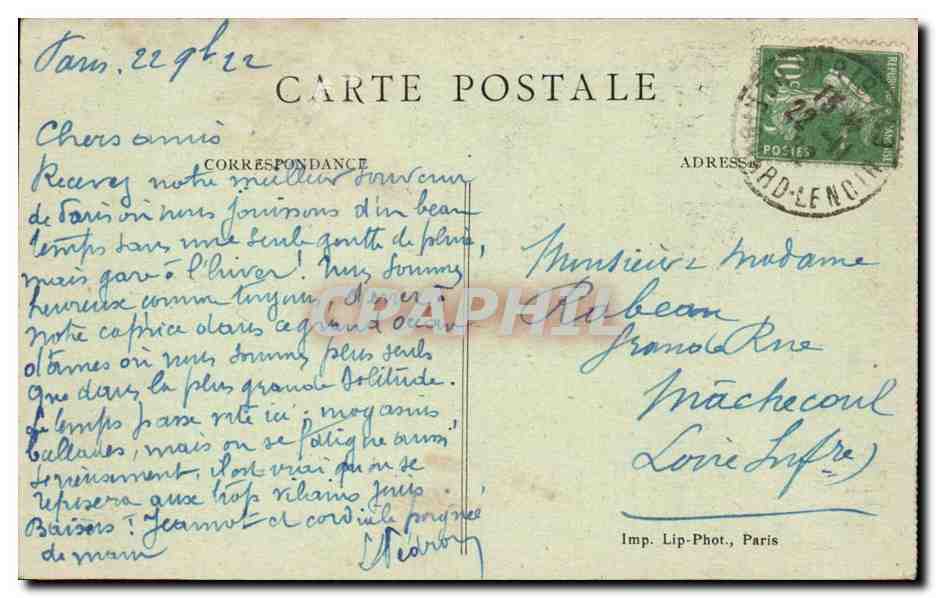 Paris, 22 9bre 22
CARTE POSTALE
Chers amis
CORRESPONDANCE
Recevez notre meilleur souvenir
de Paris où nous jouissons d'un beau
temps sans une seule goutte de pluie,
mais gare à l'hiver! Nous sommes
heureux comme toujours d'errer à
notre caprice dans ce grand océan
d'âmes où nous sommes plus seuls
que dans la plus grande solitude.
Le temps passe vite ici; magasins
ballades, mais on se fatigue aussi
sérieusement, il est vrai qu'on se
reposera aux trop vilains jours.
Baisers à Jeannot et cordiale poignée
de main
ADRESSE
Monsieur & Madame
Rabeau
Grande Rue
Mâchecoul
Loire Infre)
Imp. Lip-Phot., Paris
10c
POSTES
RD-LENOIR
CPARAPHIL